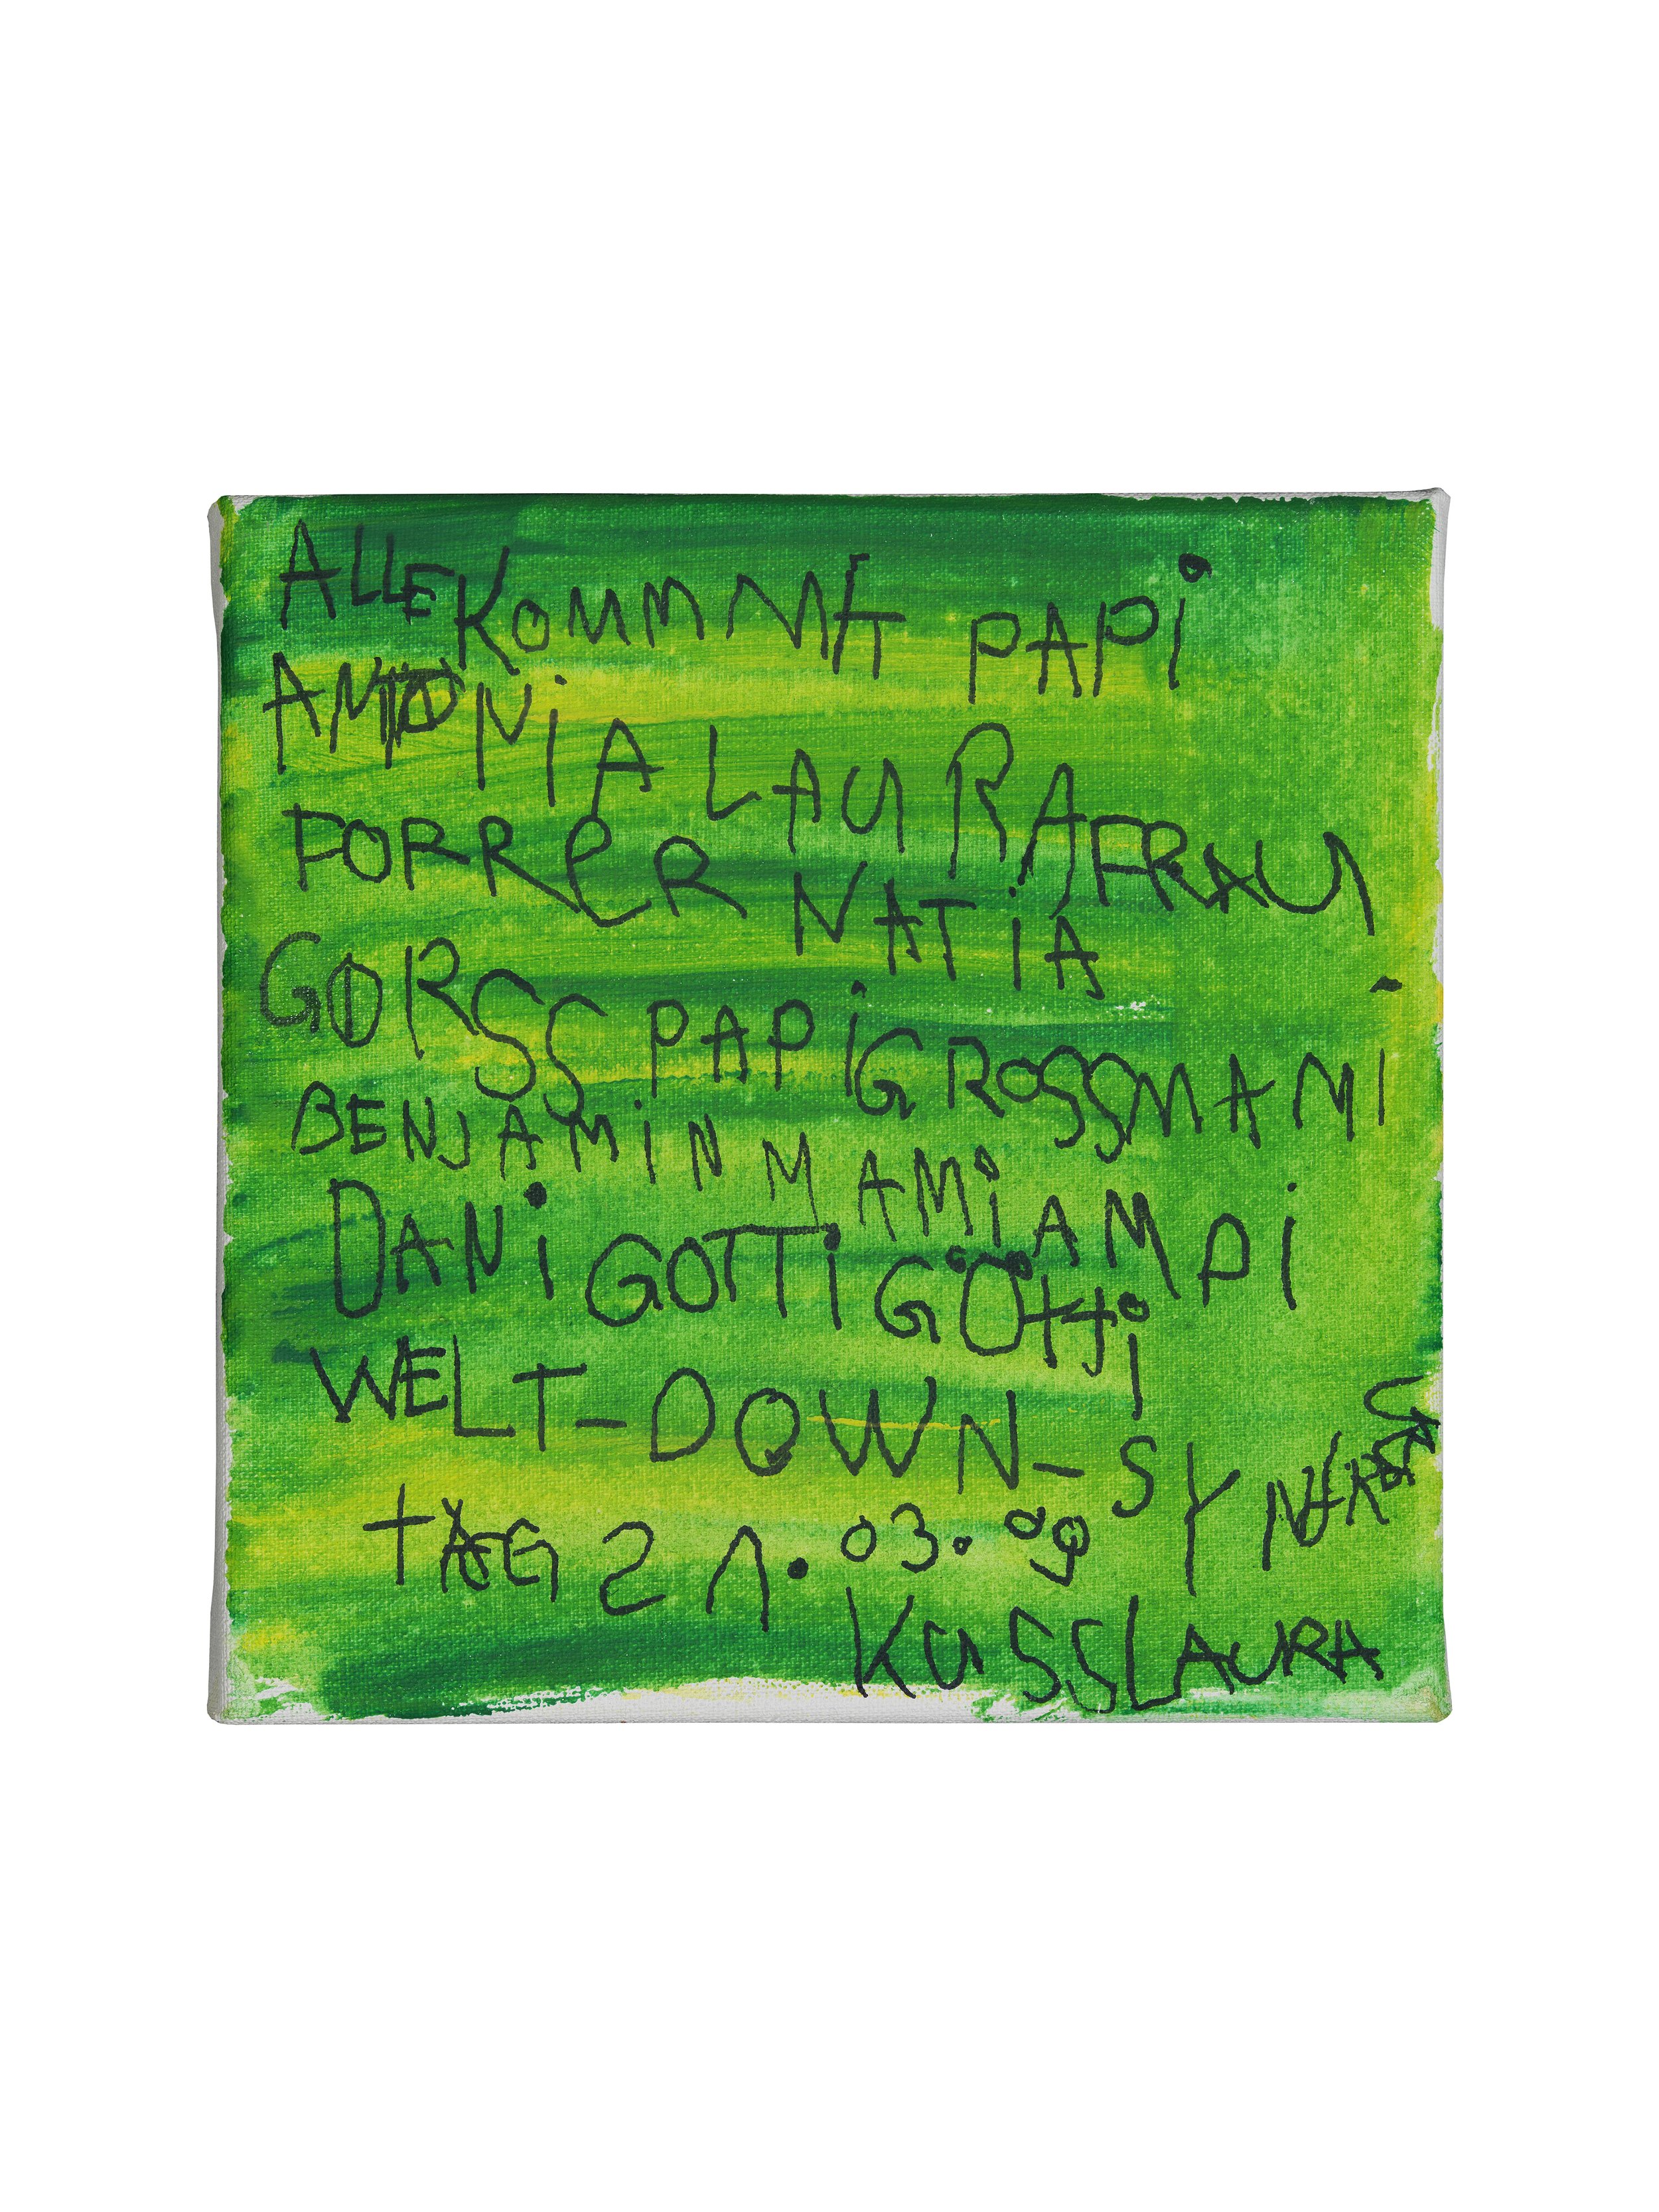 ALLE KOMMMMET PAPI
ANTONIA LAURA FRAU
FORRER NATIA
GORSS PAPI GROSSMAMI
BENJAMIN MAMI AMPI
DANI GOTTI GÖTTI
WELT-DOWN-SY
TAG 21.03.09
KUSS LAURA